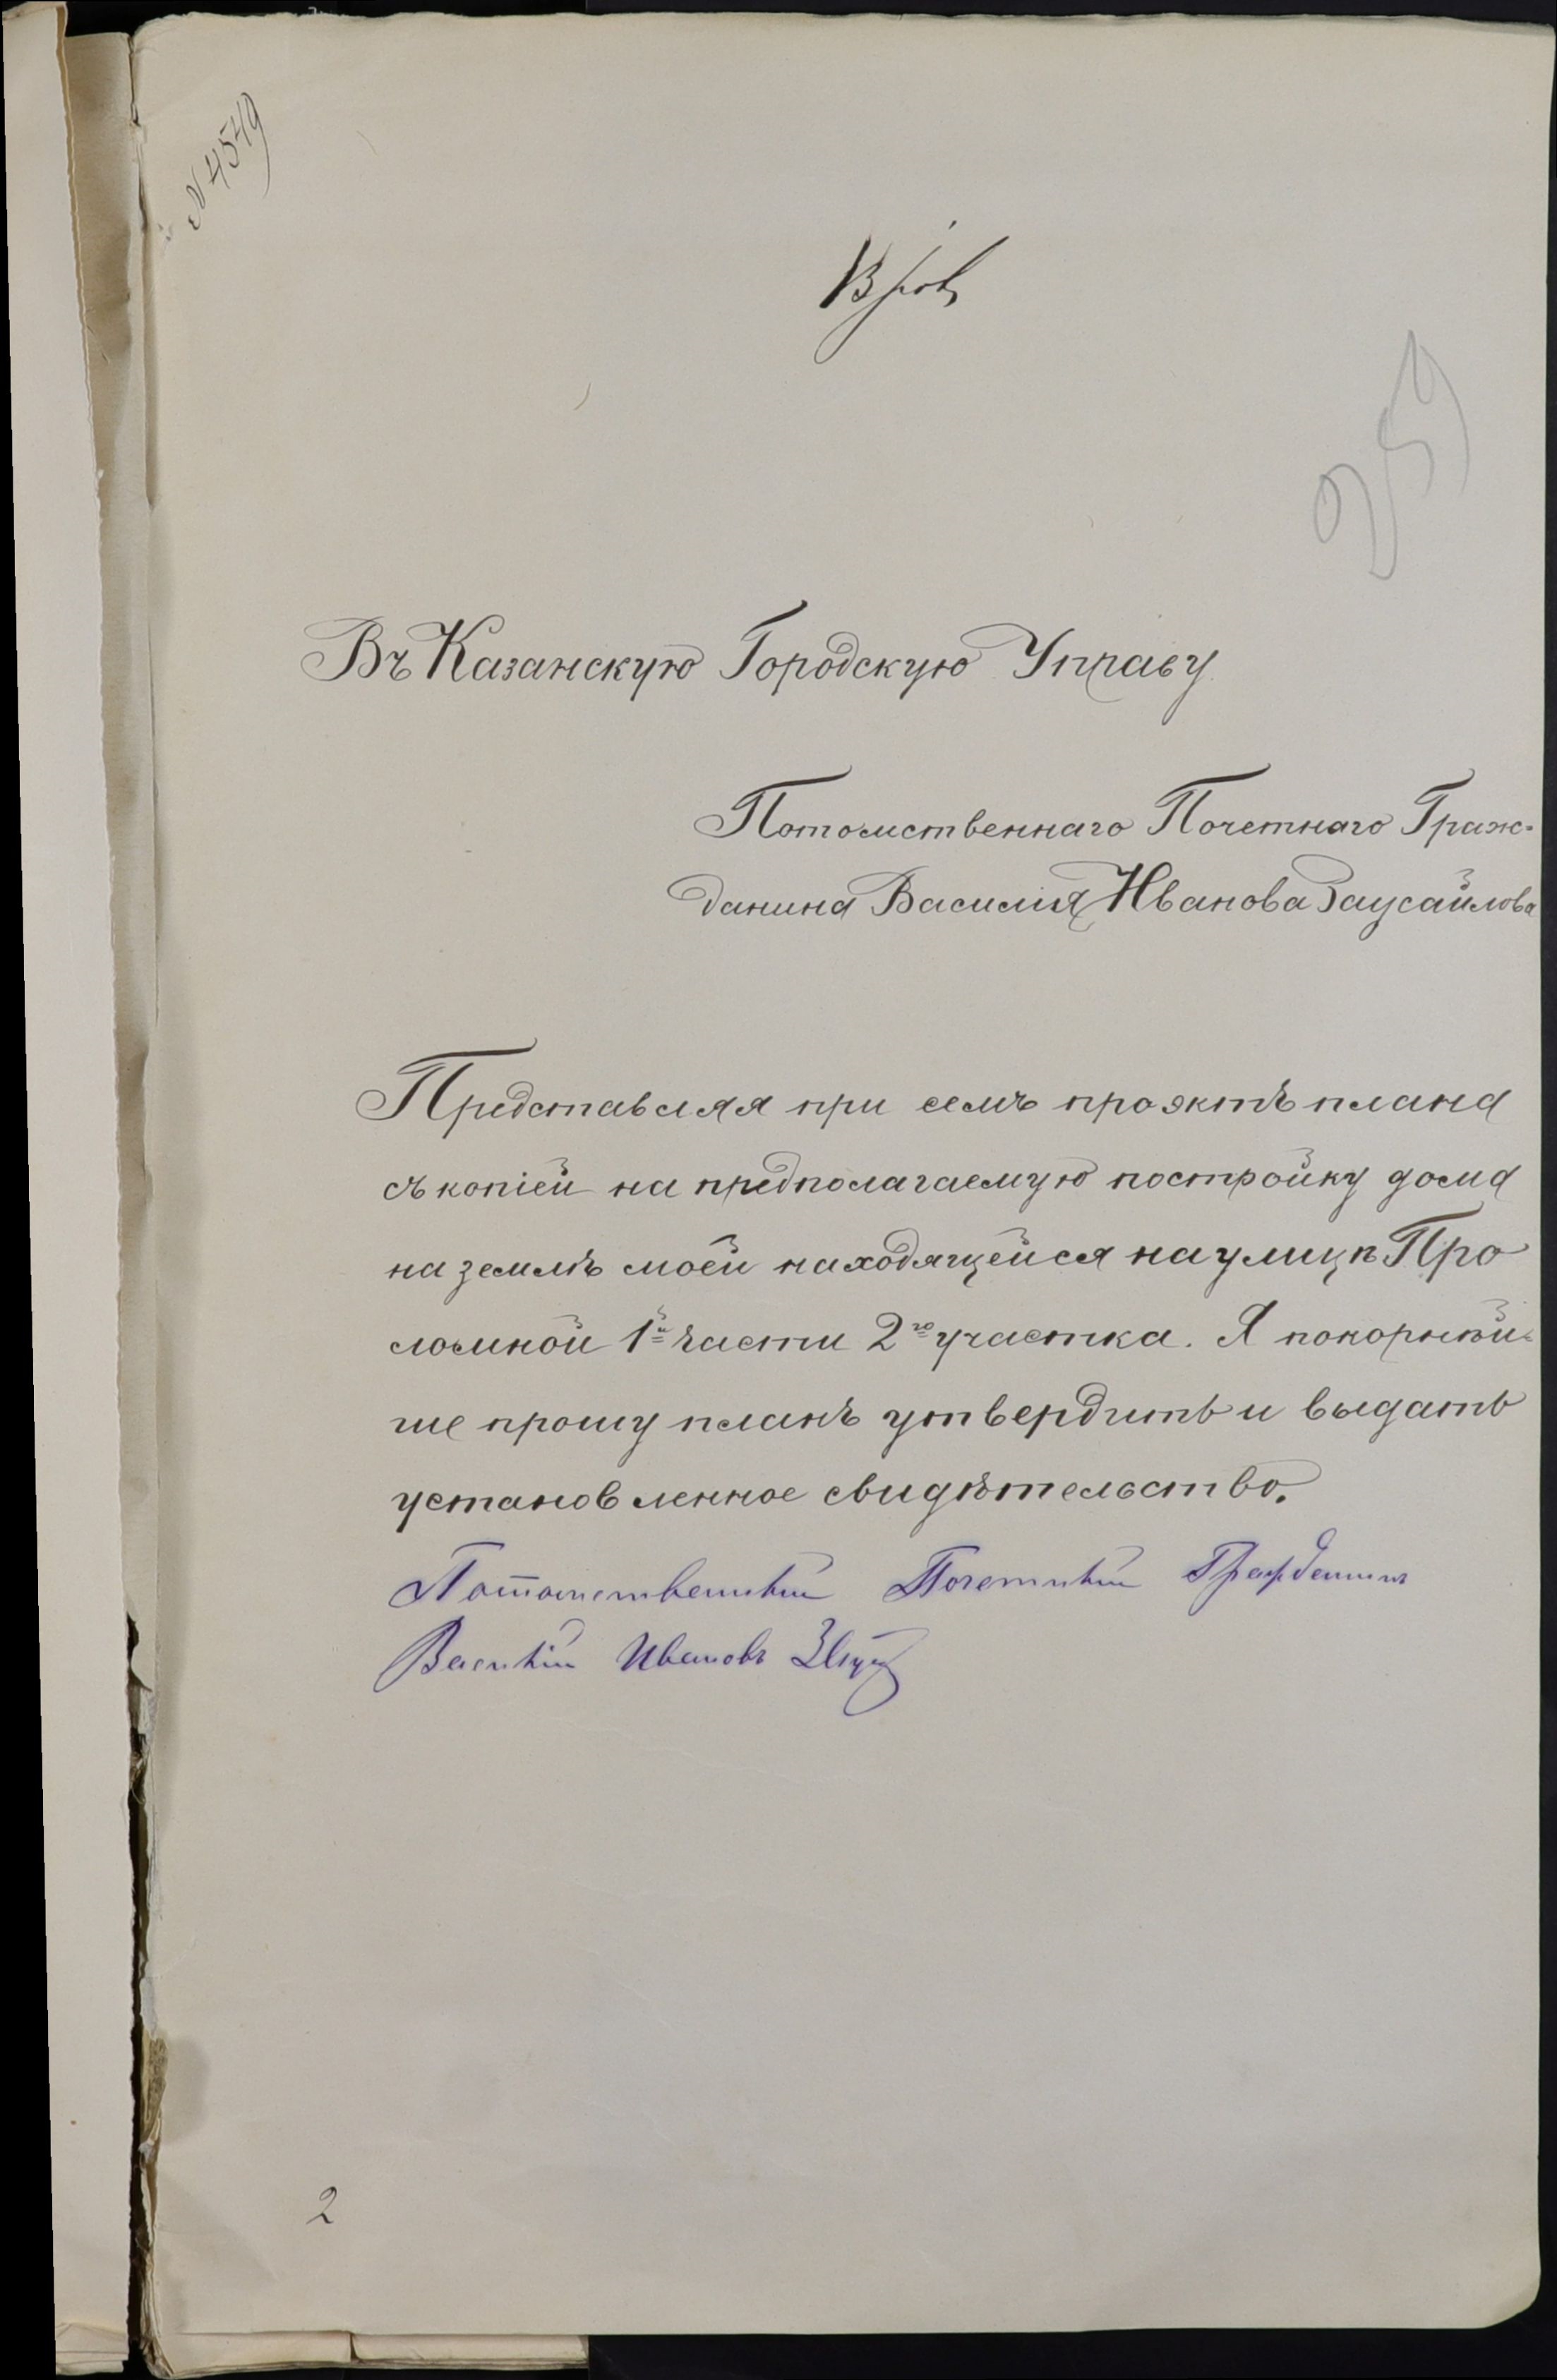 N 4549
Въ Казанскую Городскую Управу
Потомственнаго Почетнаго Граж-
данина Василия Иванова Заусайлова
Представляя при семъ проэктъ плана
съ копіей на предполагаемую постройку дома
на землѣ моей находящейся на улицѣ Про
ломной 1й части 2го участка. Я покорнѣй-
ше прошу планъ утвердить и выдать
установленное свидѣтельство.
Потомственный Почетный Гражданинъ
Василій Ивановъ
2